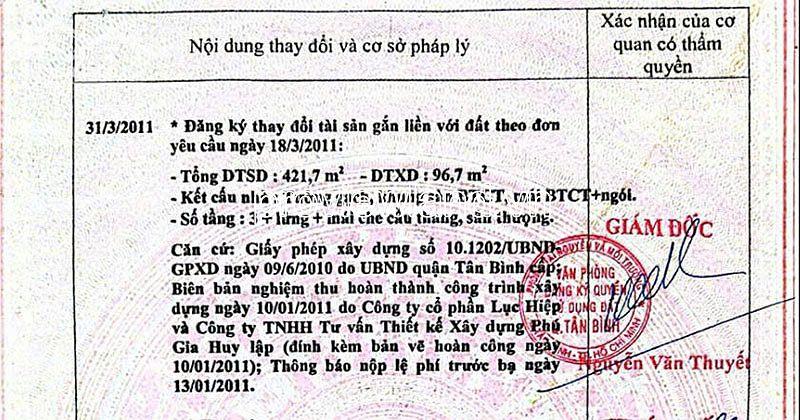 Nội dung thay đổi và cơ sở pháp lý
Xác nhận của cơ
quan có thẩm
quyền
31/3/2011 * Đăng ký thay đổi tài sản gắn liền với đất theo đơn
yêu cầu ngày 18/3/2011:
- Tổng DTSD : 421,7 m² - DTXD : 96,7 m²
- Kết cấu nhà : tường gạch, BTCT, BTCT+ngói.
- Số tầng : 3 + lửng + mái che cầu thang, sân thượng.
Căn cứ: Giấy phép xây dựng số 10.1202/UBND-
GPXD ngày 09/6/2010 do UBND quận Tân Bình cấp;
Biên bản nghiệm thu hoàn thành công trình xây
dựng ngày 10/01/2011 do Công ty cổ phần Lục Hiệp
và Công ty TNHH Tư vấn Thiết kế Xây dựng Phú
Gia Huy lập (đính kèm bản vẽ hoàn công ngày
10/01/2011); Thông báo nộp lệ phí trước bạ ngày
13/01/2011.
GIÁM ĐỐC
VĂN PHÒNG
ĐĂNG KÝ QUYỀN
SỬ DỤNG ĐẤT
Q.TÂN BÌNH
Nguyễn Văn Thuyết